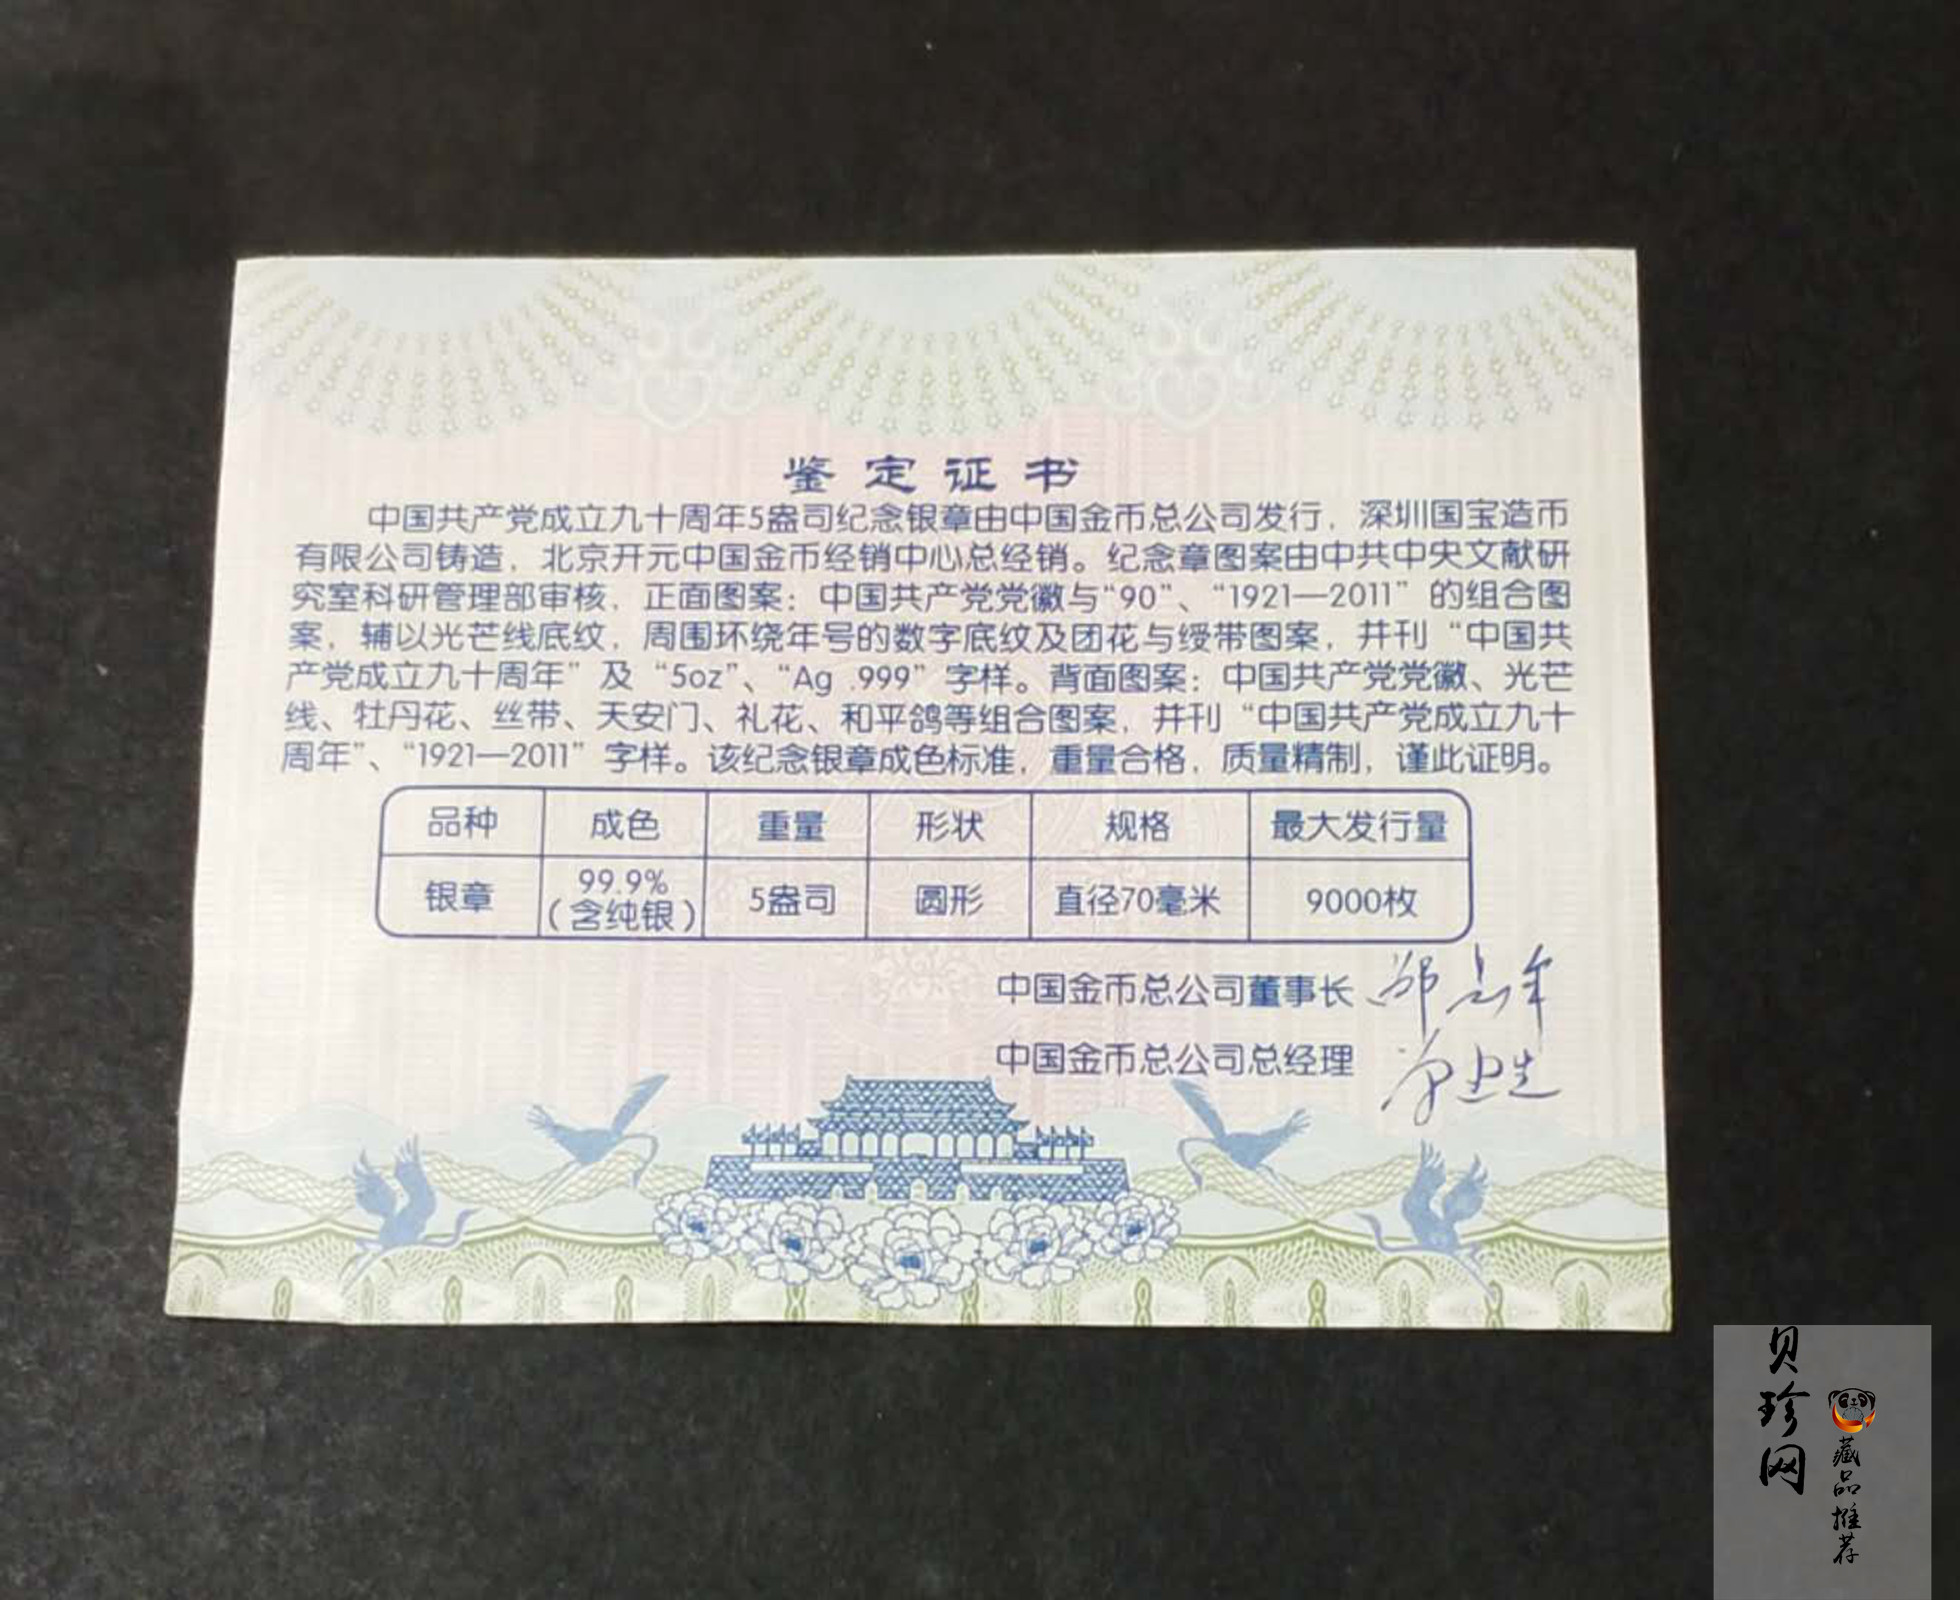 鉴定证书
中国共产党成立九十周年5盎司纪念银章由中国金币总公司发行，深圳国宝造币
有限公司铸造，北京开元中国金币经销中心总经销。纪念章图案由中共中央文献研
究室科研管理部审核，正面图案：中国共产党党徽与“90”、“1921—2011”的组合图
案，辅以光芒线底纹，周围环绕年号的数字底纹及团花与绶带图案，并刊“中国共
产党成立九十周年”及“5oz”、“Ag .999”字样。背面图案：中国共产党党徽、光芒
线、牡丹花、丝带、天安门、礼花、和平鸽等组合图案，并刊“中国共产党成立九十
周年”、“1921—2011”字样。该纪念银章成色标准，重量合格，质量精制，谨此证明。
品种 成色 重量 形状 规格 最大发行量
银章 99.9%（含纯银） 5盎司 圆形 直径70毫米 9000枚
中国金币总公司董事长
中国金币总公司总经理
贝珍网
藏品推荐